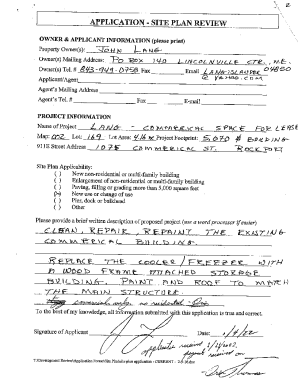 2
APPLICATION - SITE PLAN REVIEW
OWNER & APPLICANT INFORMATION (please print)
Property Owner(s): JOHN LANG
Owner(s) Mailing Address: PO BOX 140 LINCOLNVILLE CTR., ME.
Owner(s) Tel. # 843-949-0758 Fax Email LANGISLANDER 04850
Applicant/Agent @ YAHOO.COM
Agent's Mailing Address
Agent's Tel. # Fax E-mail
PROJECT INFORMATION
Name of Project LANG - COMMERICAL SPACE FOR LEASE
Map: Lot: 169 Lot Area: Project Footprint: 5,070 # BUILDING
911# Street Address 1075 COMMERICAL ST. ROCKPORT
Site Plan Applicability:
( ) New non-residential or multi-family building
( ) Enlargement of non-residential or multi-family building
( ) Paving, filling or grading more than 5,000 square feet
New use or change of use
( ) Pier, dock or bulkhead
( ) Other
Please provide a brief written description of proposed project (use a word processor if easier)
CLEAN, REPAIR, REPAINT THE EXISTING
COMMERICAL BUILDING.
REPLACE THE COOLER/FREEZER WITH
A WOOD FRAME ATTACHED STORAGE
BUILDING. PAINT AND ROOF TO MATCH
THE MAIN STRUCTURE.
commercial only. no residential
To the best of my knowledge, all information submitted with this application is true and correct.
Signature of Applicant Date:
application received
payment received on